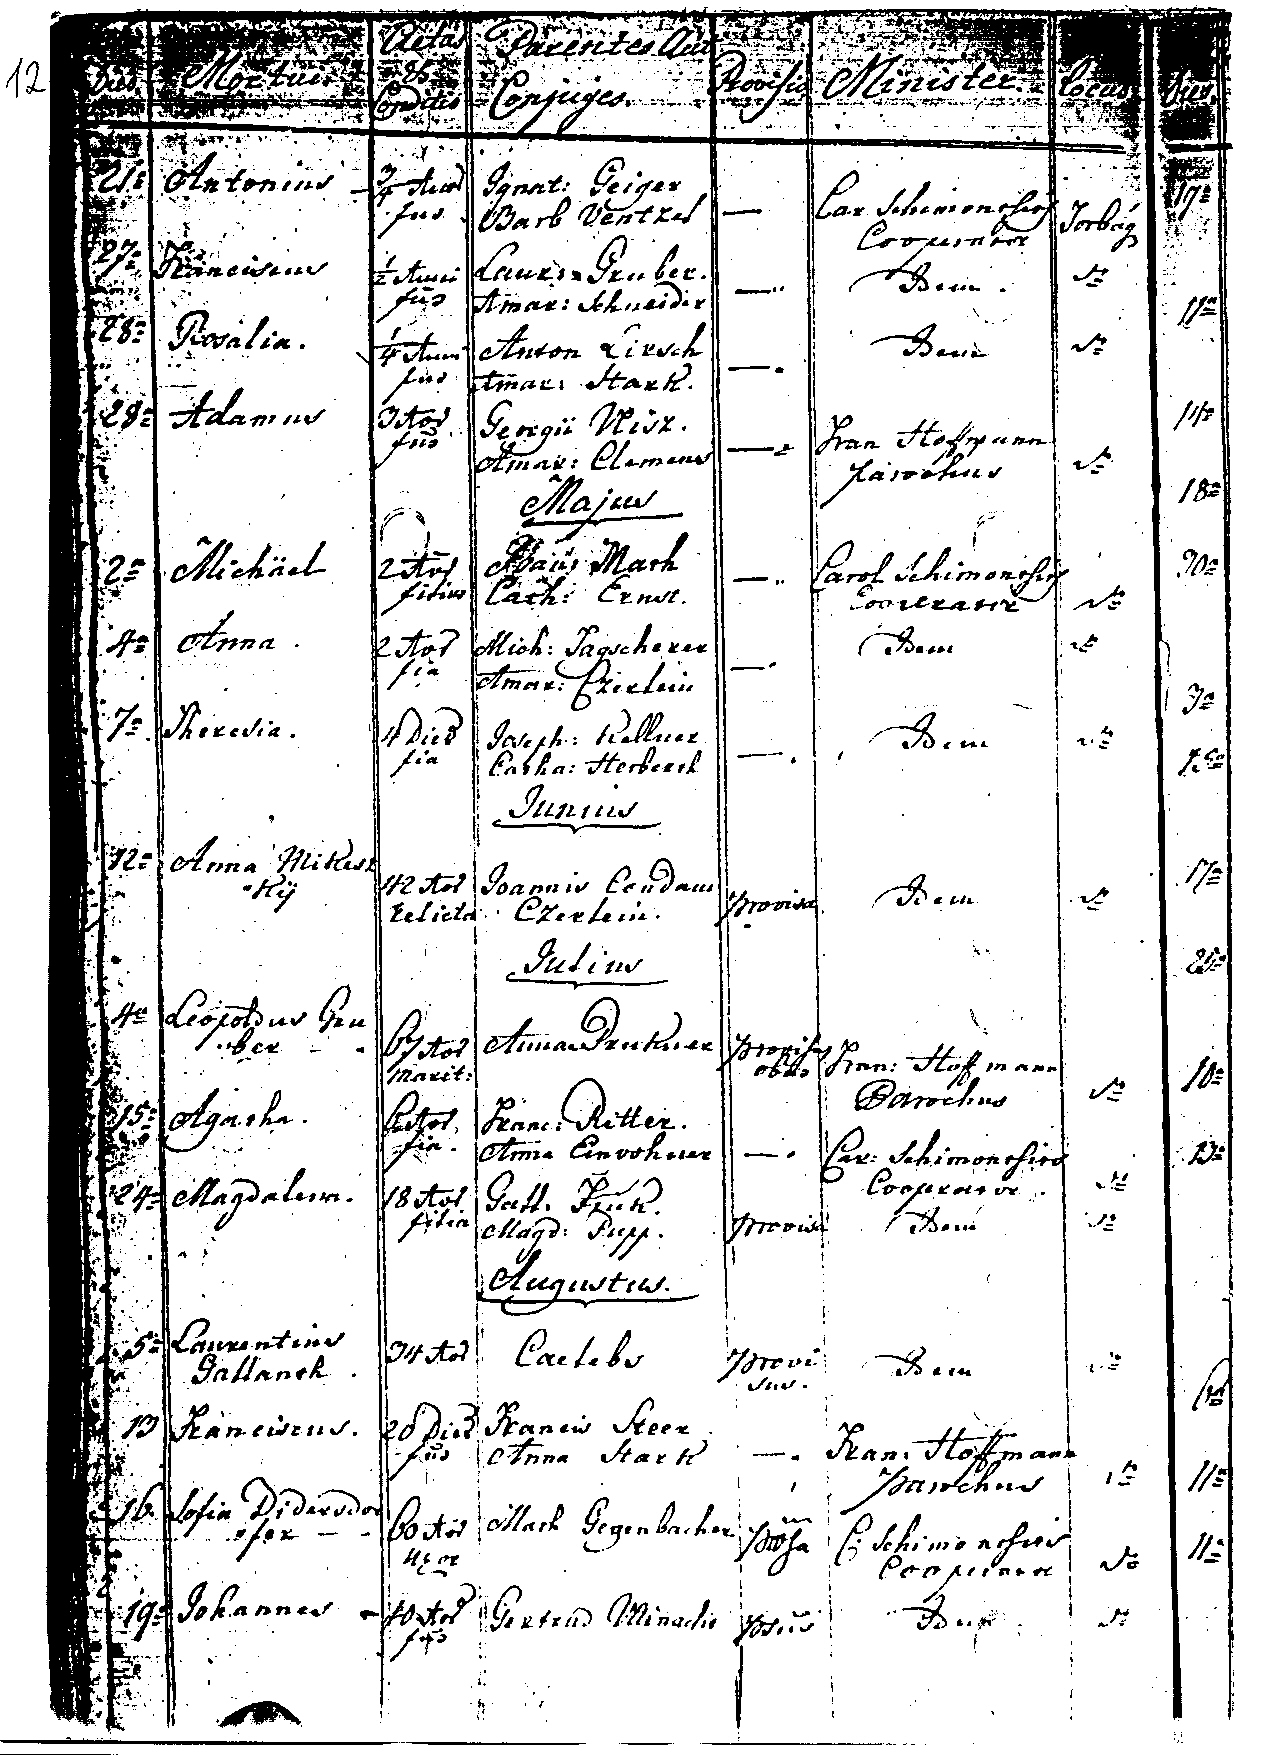 12
Dies Mortui Aetas & Conditio Parentes Aut Conjuges. Provisio Minister. Locus Dies
21a Antonius 3/4 Anni fius Ignat: Geiger
Barb Ventzel — Car Schimonshis Cooperator Torbág 19a
27a Franciscus 1/2 Anni fius Laur: Gruber.
Amar: Schneider — Idem. dto
11a
28a Rosalia. 1/4 Anni Anton Lirsch
fius Amar: Stark. — Idem dto
28a Adamus 3 Aor fius Georgii Wisz.
Amar: Clemens — Fran Hoffmann Parochus dto
Majus
18a
2a Michäel 2 Aor filius Mach
Cath: Ernst. — Carol Schimonshis Cooperator dto 30a
4a Anna. 2 Aor fia Mich: Tagscherer
Amar: Czerlein — Idem dto
3a
7a Theresia. 4 Dier fia Joseph: Kellner
Catha: Herberth — Idem dto
Junius
12a Anna Mikesz
kij 42 Aor relicta Joannis Condam
Czerlein. provisa Idem dto 17a
Julius
25a
4a Leopoldus Gru
ber 67 Aor marit: Anna Prukner Fran: Hoffmann
Parochus dto 10a
15a Agatha. Aor fia. Franc: Ritter.
Anna Einvohner — Car: Schimonshis
Cooperator. dto 13a
24a Magdalena. 18 Aor filia Gall.
Magd: Pupp. provisa Idem dto
Augustus.
5a Laurentius
Gallaneh. 34 Aor Caelebs provi
sus. Idem dto
13 Franciscus. 20 Dier fius Francis Steer
Anna Stark — Fran: Hoffmann
Parochus dto 11a
16. Sofia Didersdor
fer 60 Aor uxor Math Gegenbacher C: Schimonshis
Cooperator dto 11a
19a Johannes 40 Aor Gertrud Minachi Idem dto